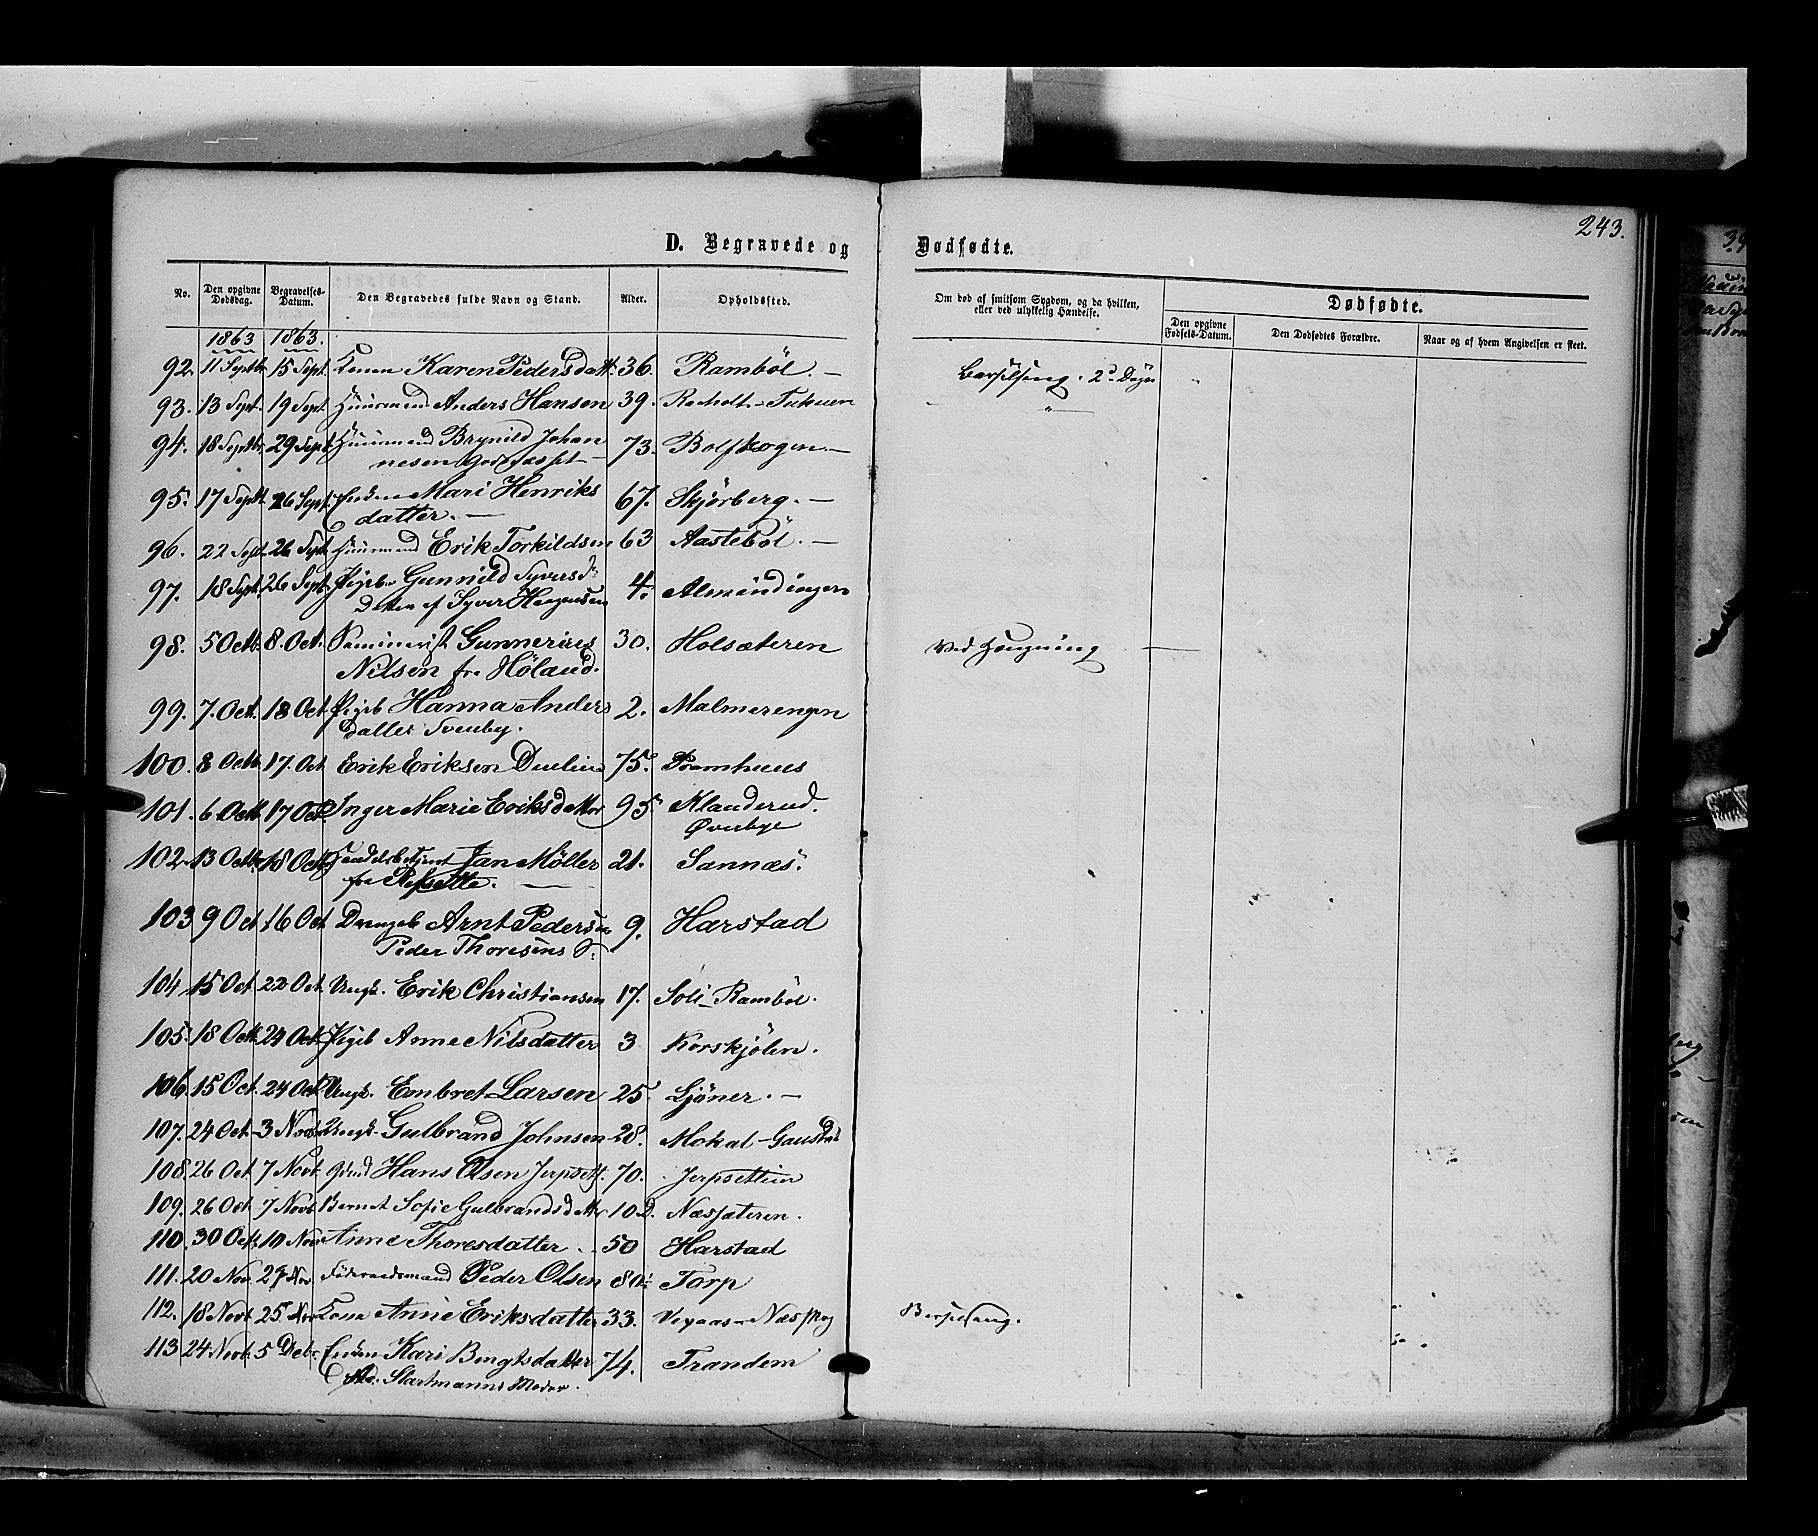 243.
D. Begravede og Dødfødte.
No. Den opgivne Dødsdag. Begravelses-Datum. Den Begravedes fulde Navn og Stand. Alder. Opholdssted. Om død af smitsom Sygdom, og da hvilken, eller ved ulykkelig Hændelse. Dødfødte.
Den opgivne Fødsels-Datum. Den Dødfødtes Forældre. Naar og af hvem Angivelsen er skeet.
1863 1863.
92. 11 Septbr 15 Sept. Konen Karen Pedersdatt. 36. Ramböl. — Barselseng. 2 Dage
93. 13 Sept. 19 Sept Huusmand Anders Hansen 39. Racholt - — " —
94. 18 Septbr 29 Sept. Huusmand Brynild Johan 73. Bolfskogen —
nesen
95. 17 Septb. 26 Sept. Enken Mari Henriks 67. Skjørberg. —
datter. —
96. 22 Sept. 26 Sept Huusmand Erik Torkildsen 63 Aasteböl. —
97. 18 Sept. 26 Sept. Pigeb. Gunnild Syversd: 4. Almindingen
Datter af Syver Haagensen
98. 5 Octb. 8. Oct. Seminarist Gunnerius 30. Holsæteren Ved Hængning —
Nilsen fra Höland.
99. 7. Octb. 18 Oct. Pigeb Hanna Anders 2. Malmerengen
datter Svenby.
100. 8 Octb. 17. Oct Erik Eriksen 75. Pramhuus
101. 6 Octb. 17 Oct. Inger Marie Eriksdatter 95. Klanderud.
Øverbye
102. 13 Octbr. 18 Octb Handelsbetjent Jan Möller 21. Sannæs.
fra —
103 9 Oct 16 Oct Drengeb Arnt Pedersen 9. Harstad
Peder Thoresens S:
104 15 Oct 22 Oct. Ungk. Erik Christiansen 17. Soli - Ramböl.
105. 18 Octb. 24 Oct. Pigeb Anne Nilsdatter 3 Korskjölen.
106. 15 Oct. 24 Oct. Ungk. Embret Larsen 25. Ljöner. —
107. 24 Oct. 3 Novb. Ungk. Gulbrand Johnsen 28. Mokal - Gaustad
108. 26 Oct 7 Novb. Hans Olsen Jerpsett. 70. Jerpsettien
109. 26 Oct. 7 Novb Bernet Sofie Gulbrandsdatter 10 D. Næssæteren.
110. 30 Octb. 10 Nov Anne Thoresdatter .. 50 Harstad
111. 20 Nov. 27 Nov. Föderaadsmand Peder Olsen 80: Torp
112. 18 Novb. 25. Nov Kone Anne Eriksdatter 33. Vegaas - Næsskog Barselseng.
113 24 Novb. 5 Debr. Enken Kari Bengtsdatter 74. Trandem
Startmanns Moder.